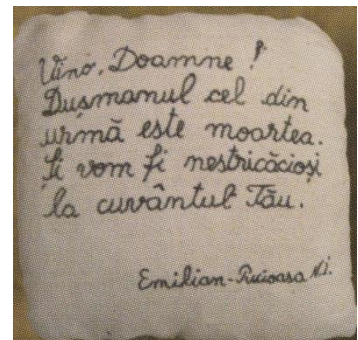 Vino, Doamne!
Dușmanul cel din
urmă este moartea.
Și vom fi nestricăcioși
la cuvântul Tău.
Emilian-